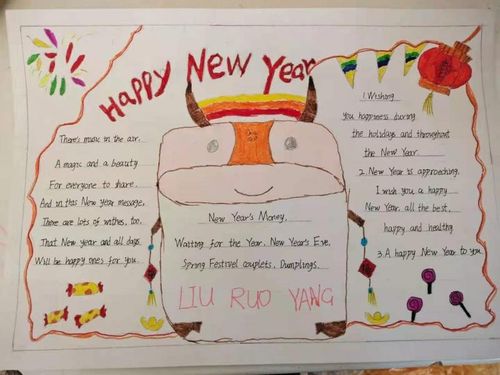 Happy New Year
There's music in the air.
A magic and a beauty
For everyone to share.
And in this New Year message,
There are lots of wishes, too,
That New year and all days
Will be happy ones for you.
New Year's Money,
Waiting for the Year, New Year's Eve,
Spring Festivel couplets, Dumplings.
LIU RUO YANG
1.Wishing
you happiness during
the holidays and throughout
the New Year
2. New Year is approaching.
I wish you a happy
New Year, all the best,
happy and healthy
3.A happy New Year to you